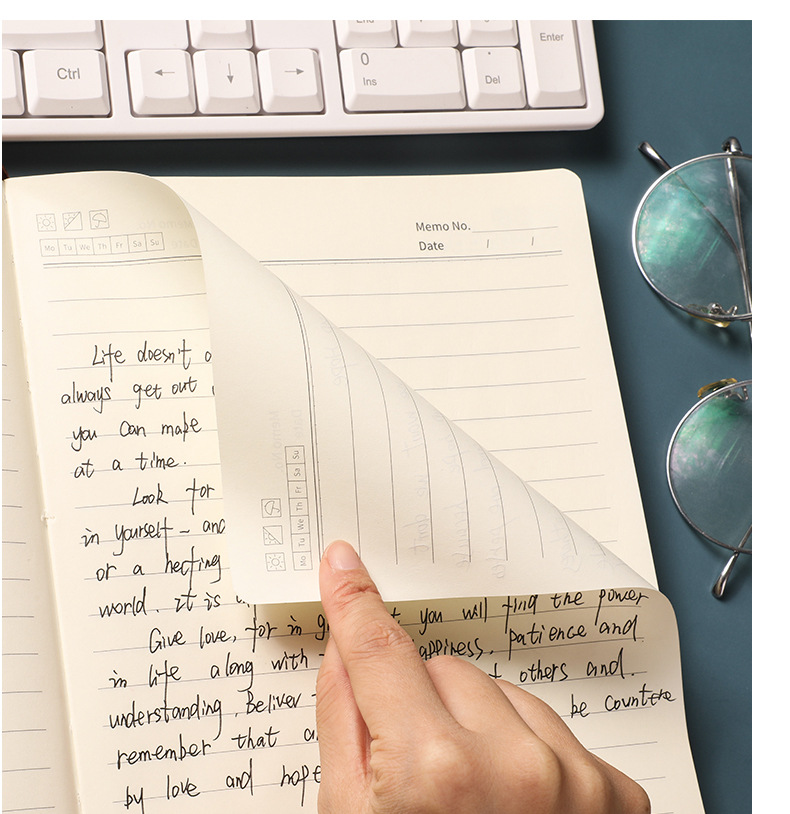 End
Enter
Ctrl
←
↓
→
0
Ins
Del
Memo No.
Date / /
Mo Tu We Th Fr Sa Su
Life doesn't
always get out
you can make
at a time.
Look for
in yourself - and
or a
world. it is
Give love, for in you will find the power
in life along with happiness. patience and
understanding. Believer others and.
remember that be count
by love and hope
Mo Tu We Th Fr Sa Su